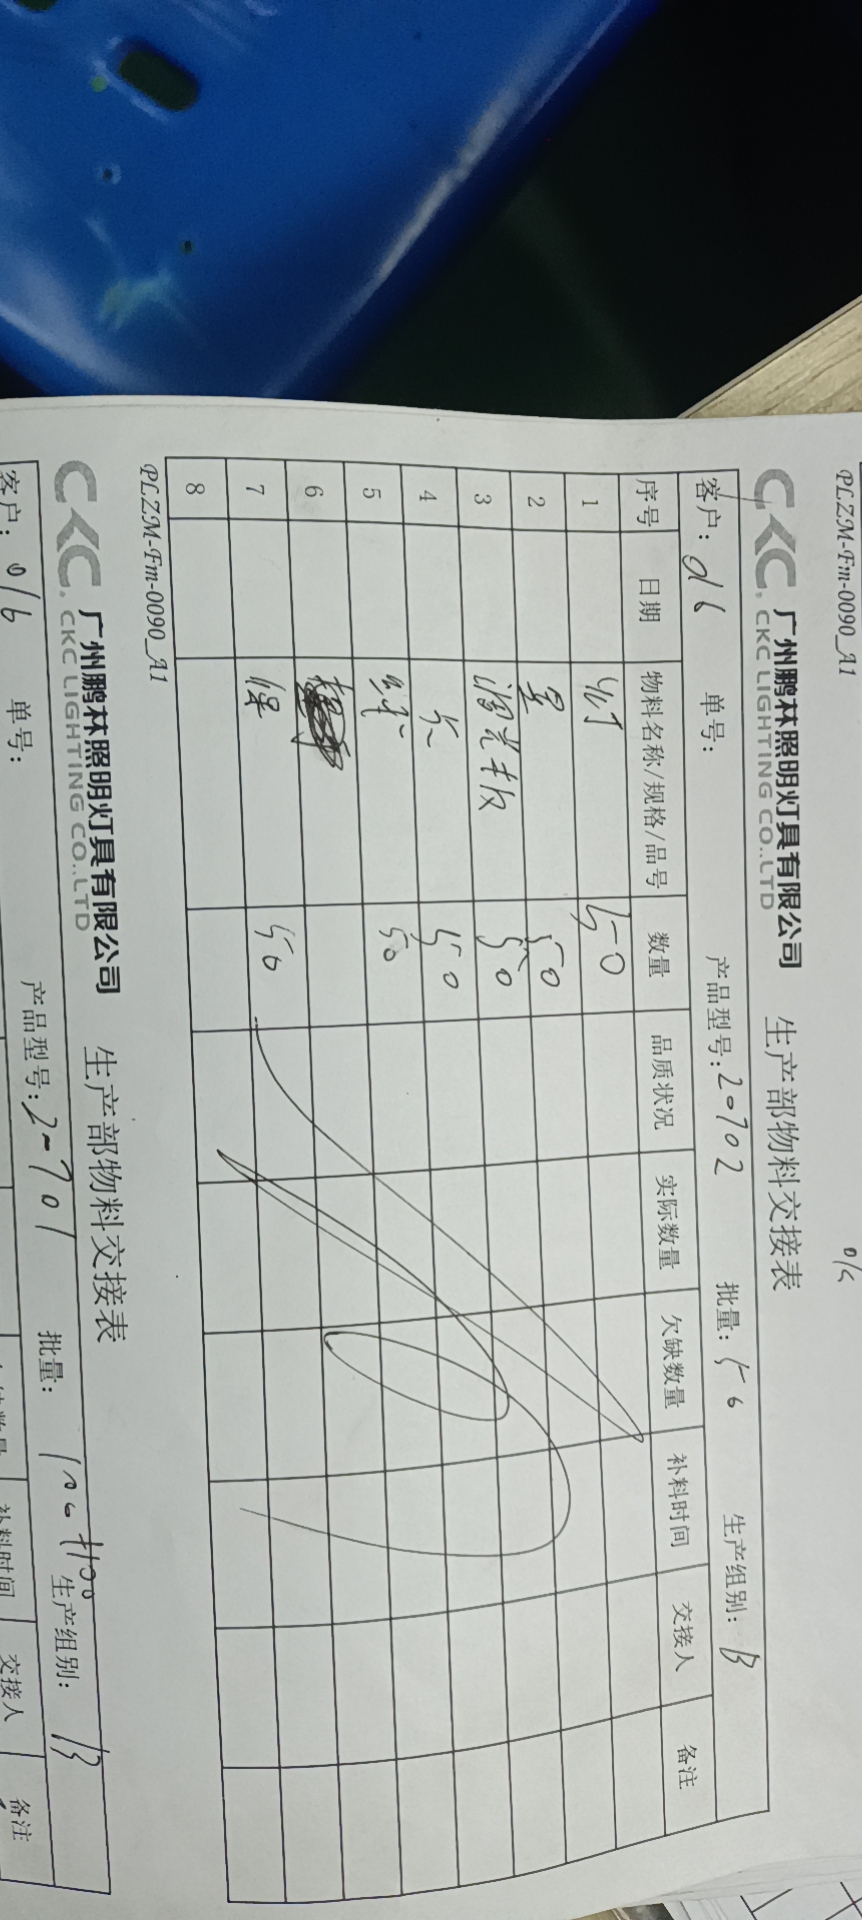 PLZM-Fm-0090_A1
016
CKC. 广州鹏林照明灯具有限公司 生产部物料交接表
CKC LIGHTING CO.,LTD
客户: 016 单号: 产品型号: 2-702 批量: 50 生产组别: B
序号 日期 物料名称/规格/品号 数量 品质状况 实际数量 欠缺数量 补料时间 交接人 备注
1 灯 50
2 罩 50
3 50
4 50
5 50
6
7 保 50
8
PLZM-Fm-0090_A1
CKC. 广州鹏林照明灯具有限公司 生产部物料交接表
CKC LIGHTING CO.,LTD
客户: 016 单号: 产品型号: 2-701 批量: 100+100 生产组别: B
补料时间 交接人 备注